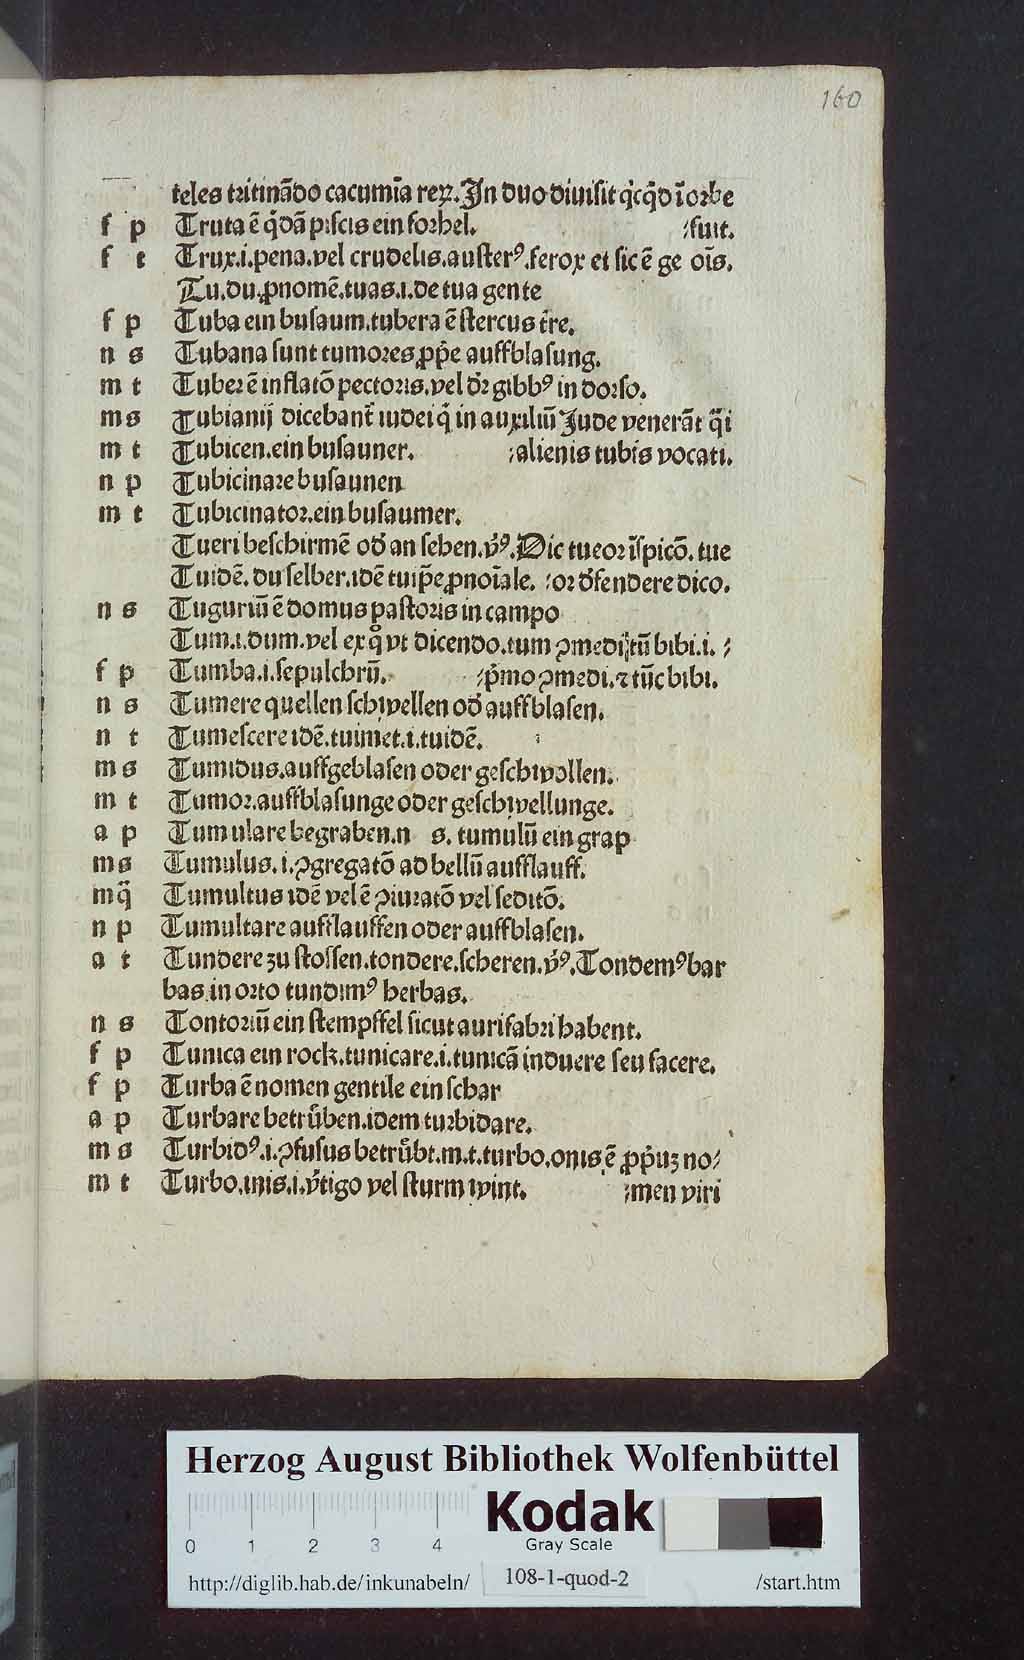 160
teles tritinādo cacumīa rex. In duo diuisit q̇cq̇d ī orbe
f p Truta ē q̇dā piscis ein forhel. /fuit.
f t Trux .i. pena. vel crudelis. austerꝰ. ferox et sic ē ge oīs.
Tu. du. ꝓnomē. tuas .i. de tua gente
f p Tuba ein busaum. tubera ē stercus t̄re.
n s Tubana sunt tumores ꝓp̄e auffblasung.
m t Tuber ē inflatō pectoris. vel dr̄ gibbꝰ in dorso.
m s Tubianij dicebant̄ iudei q̇ in auxiliū Jude venerāt q̈i
m t Tubicen. ein busauner. :alienis tubis vocati.
n p Tubicinare busaunen
m t Tubicinator. ein busaumer.
Tueri beschirmē od̄ an sehen. v̄ꝰ. Dic tueor īspicō. tue
Tuidē. du selber. idē tuip̄e ꝓnoīale. :or d̄fendere dico.
n s Tuguriū ē domus pastoris in campo
Tum .i. dum. vel ex q̊ vt dicendo. tum ꝯmedi tū bibi .i. :
f p Tumba .i. sepulchrū. :p̄mo ꝯmedi. ⁊ tūc bibi.
n s Tumere quellen schwellen od̄ auffblasen.
n t Tumescere idē. tuimet .i. tuidē.
m s Tumidus. auffgeblasen oder geschwollen.
m t Tumor. auffblasunge oder geschwellunge.
a p Tumulare begraben. n s. tumulū ein grap
m s Tumulus. i. ꝯgregatō ad bellū aufflauff.
m q̈ Tumultus idē vel ē ꝯiuratō vel seditō.
n p Tumultare aufflauffen oder auffblasen.
a t Tundere zu stossen. tondere. scheren. v̄ꝰ. Tondemꝰ bar
bas in orto tundimꝰ herbas.
n s Tontoriū ein stempffel sicut aurifabri habent.
f p Tunica ein rock. tunicare .i. tunicā induere seu facere.
f p Turba ē nomen gentile ein schar
a p Turbare betrůben. idem turbidare.
m s Turbidꝰ .i. ꝯfusus betrůbt. m. t. turbo. onis ē ꝓp̄uꝫ no/
m t Turbo. inis .i. v̄tigo vel sturm wint. :men viri
Herzog August Bibliothek Wolfenbüttel
0 1 2 3 4
Kodak
Gray Scale
http://diglib.hab.de/inkunabeln/ 108-1-quod-2 /start.htm